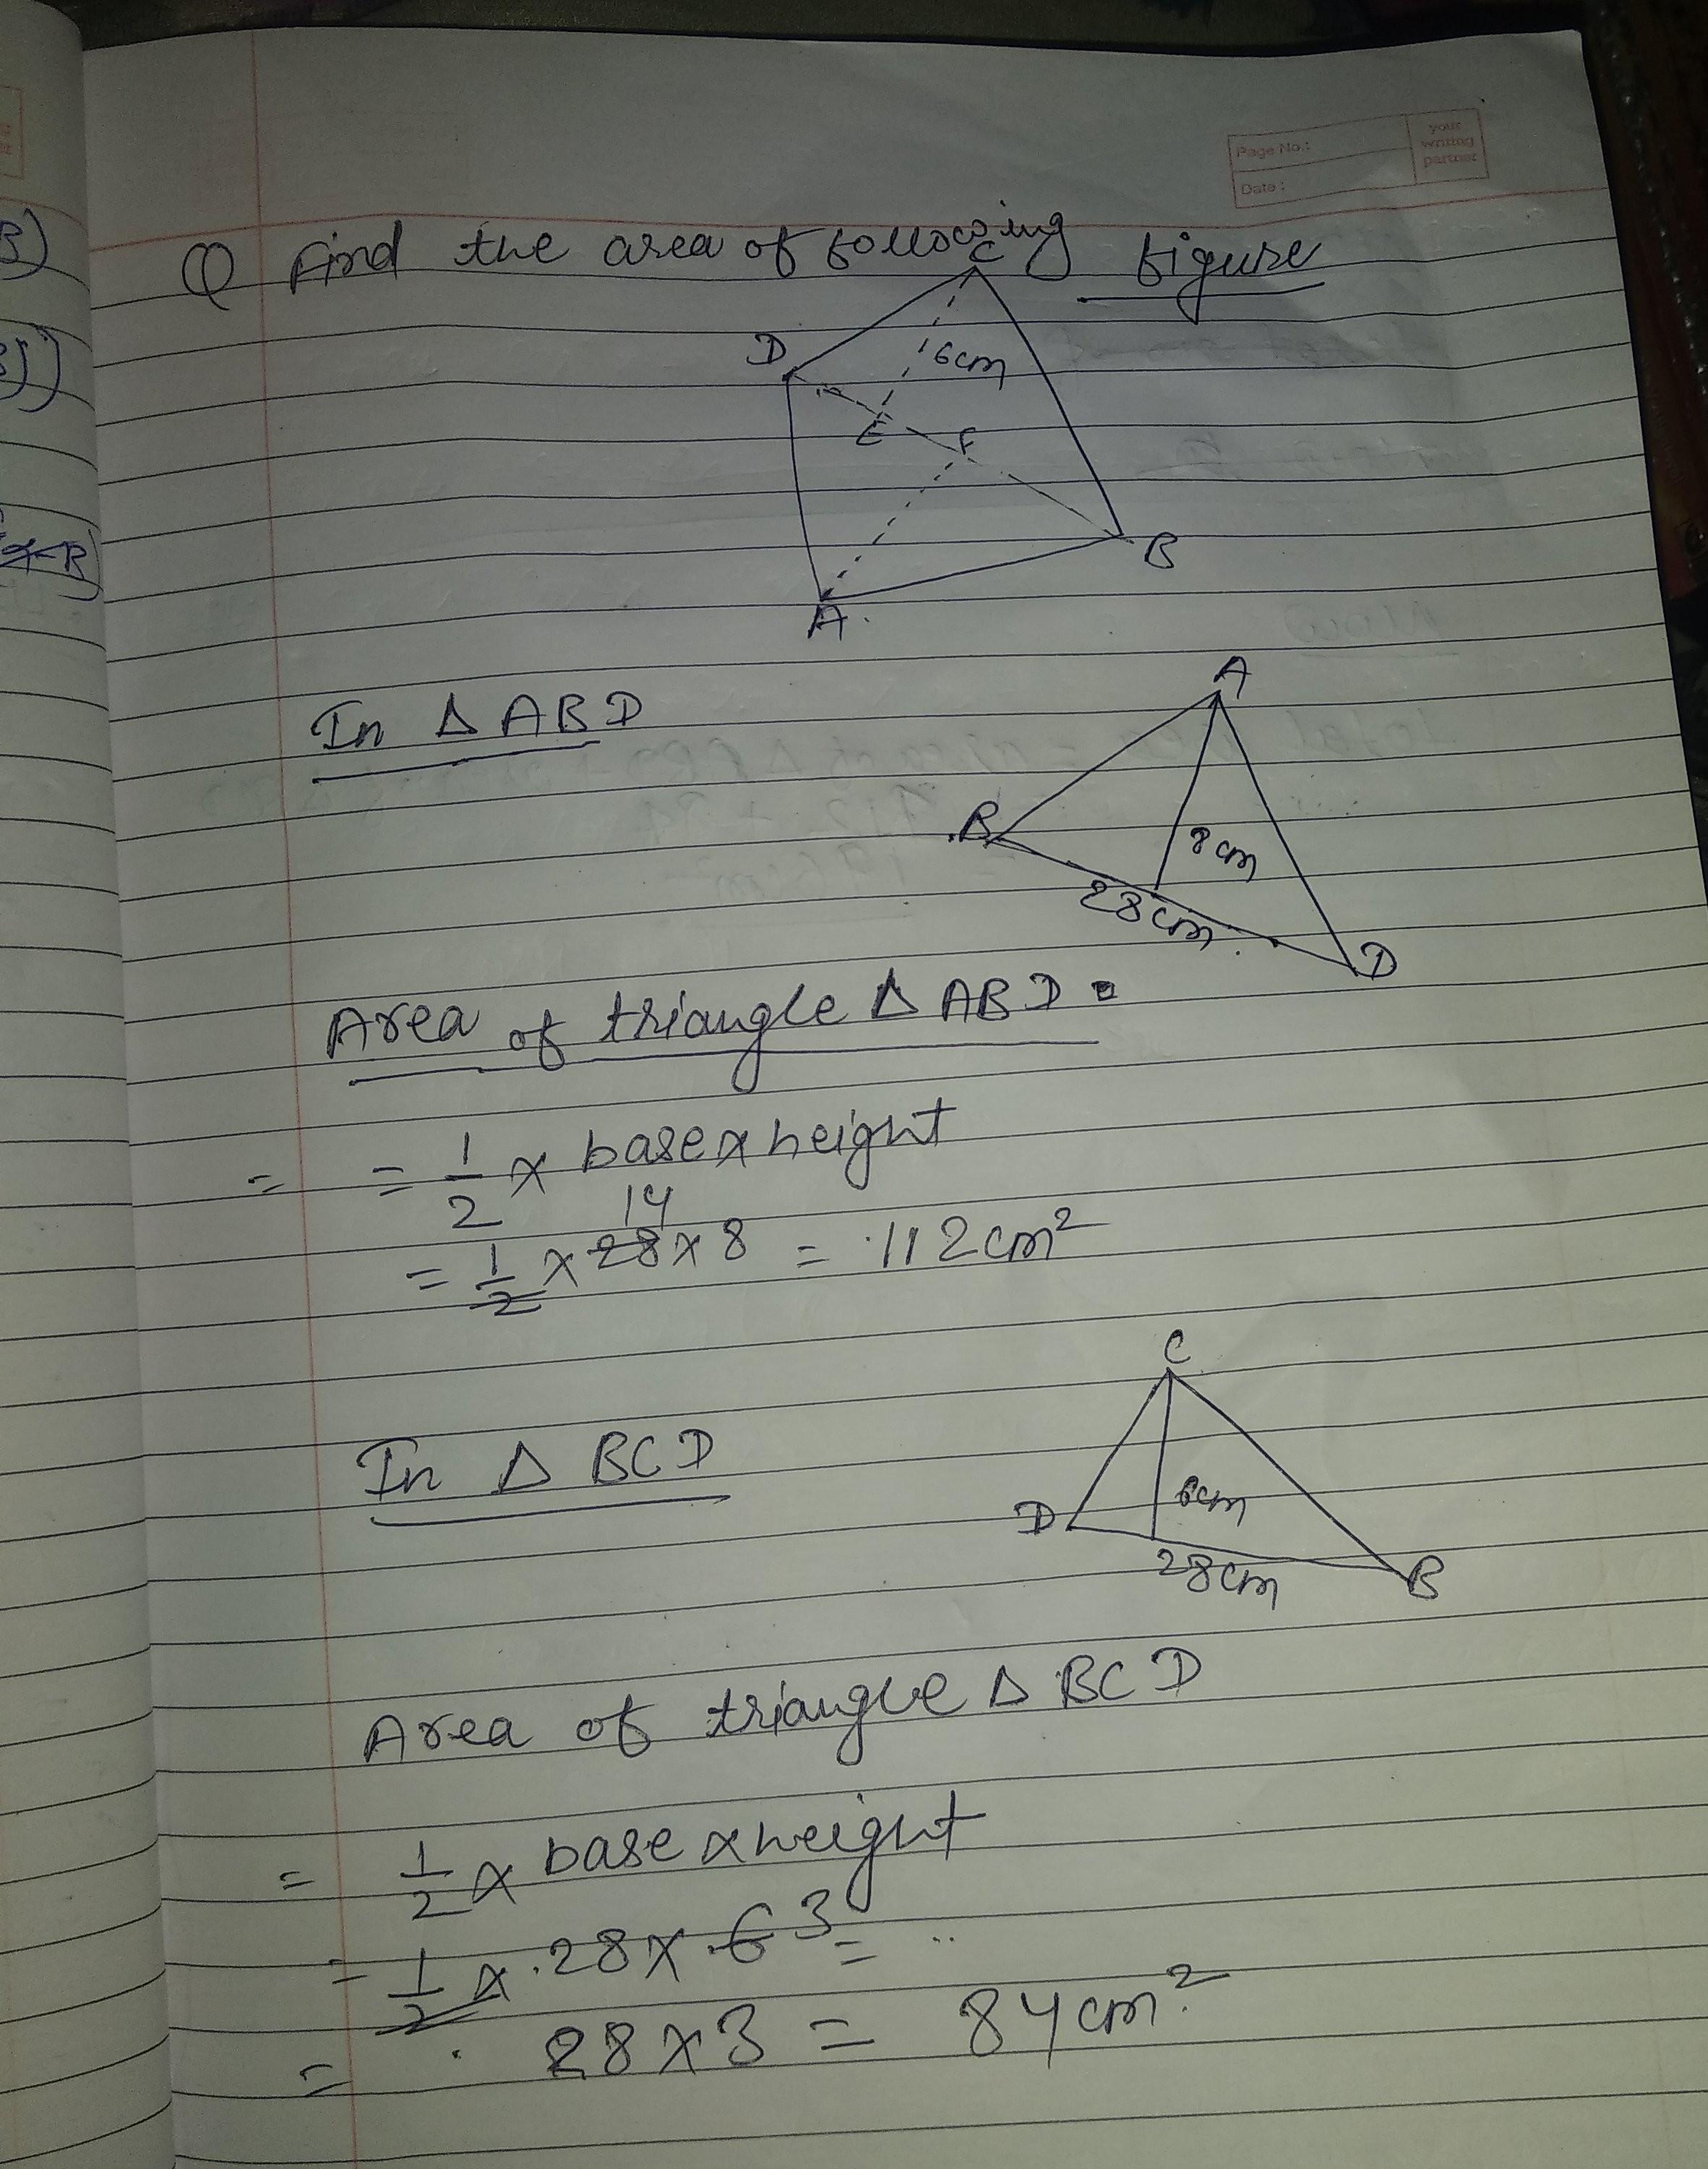 Page No.:
Date:
your writing partner
Q Find the area of following figure
C
D
6cm
E
F
B
A.
In Δ ABD
A
B
8cm
28cm.
D
Area of triangle Δ ABD =
= = 1/2 x base x height
14
= 1/2 x 28 x 8 = 112cm²
C
In Δ BCD
6cm
D
28cm
B
Area of triangle Δ BCD
= 1/2 x base x height
= 1/2 x 28 x 6 3 =
= 28 x 3 = 84cm²